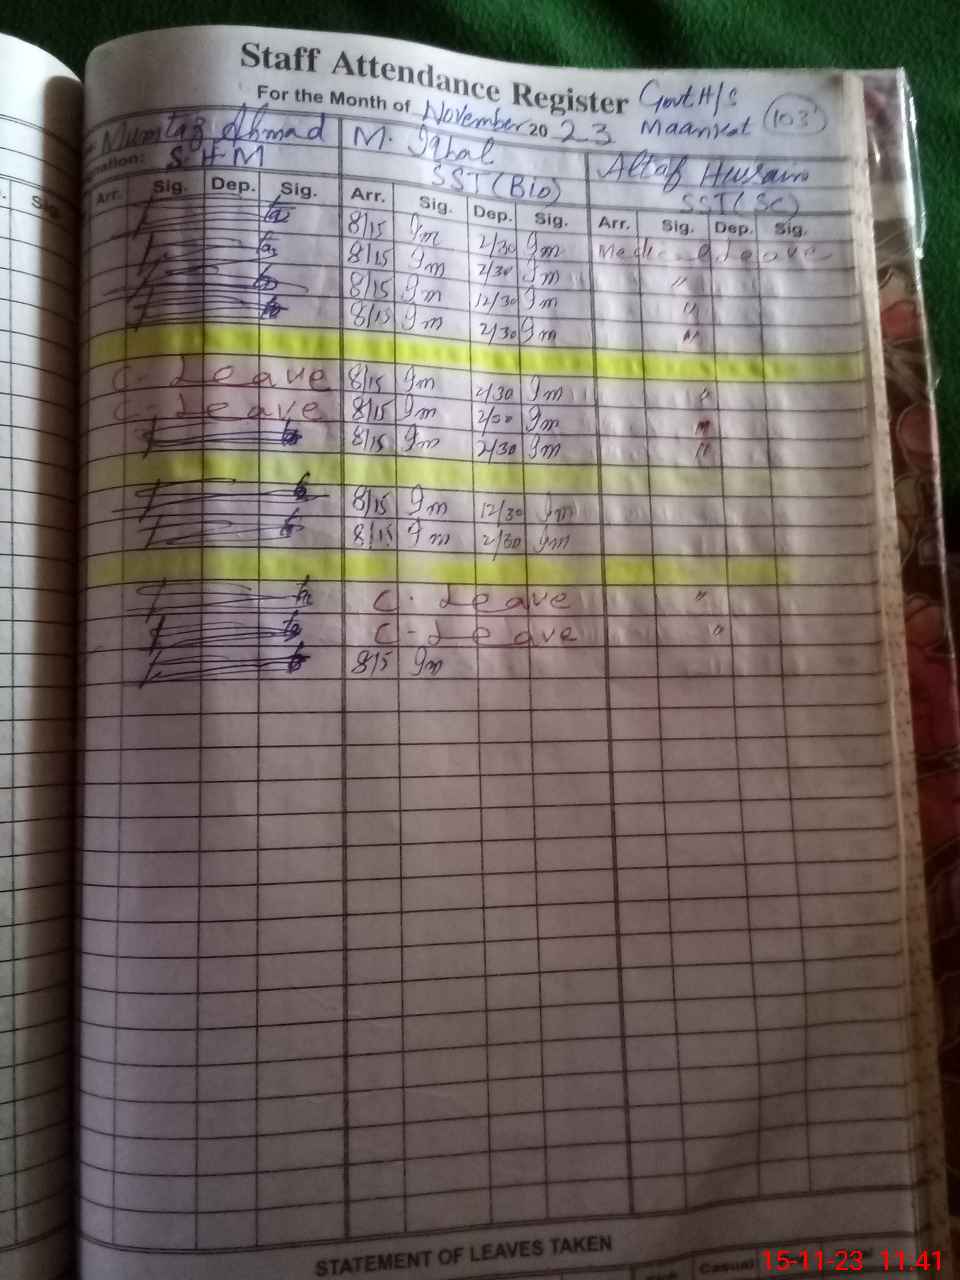 Staff Attendance Register
Govt H/S
103
For the Month of November 2023
Maankot
Mumtaz Ahmad M. Iqbal
S.H.M SST (Bio) Altaf Hussain
SST (SC)
Arr. Sig. Dep. Sig. Arr. Sig. Dep. Sig. Arr. Sig. Dep. Sig.
8/15 Im 2/30 Im Medical Leave
8/15 Im 2/30 Im "
8/15 Im 12/30 Im "
8/15 Im 2/30 Im "
C. Leave 8/15 Im 2/30 Im "
C. Leave 8/15 Im 2/30 Im "
8/15 Im 2/30 Im "
8/15 Im 12/30 Im
8/15 Im 2/30 Im
C. Leave "
C. Leave "
8/15 Im
STATEMENT OF LEAVES TAKEN
Casual
15-11-23 11:41